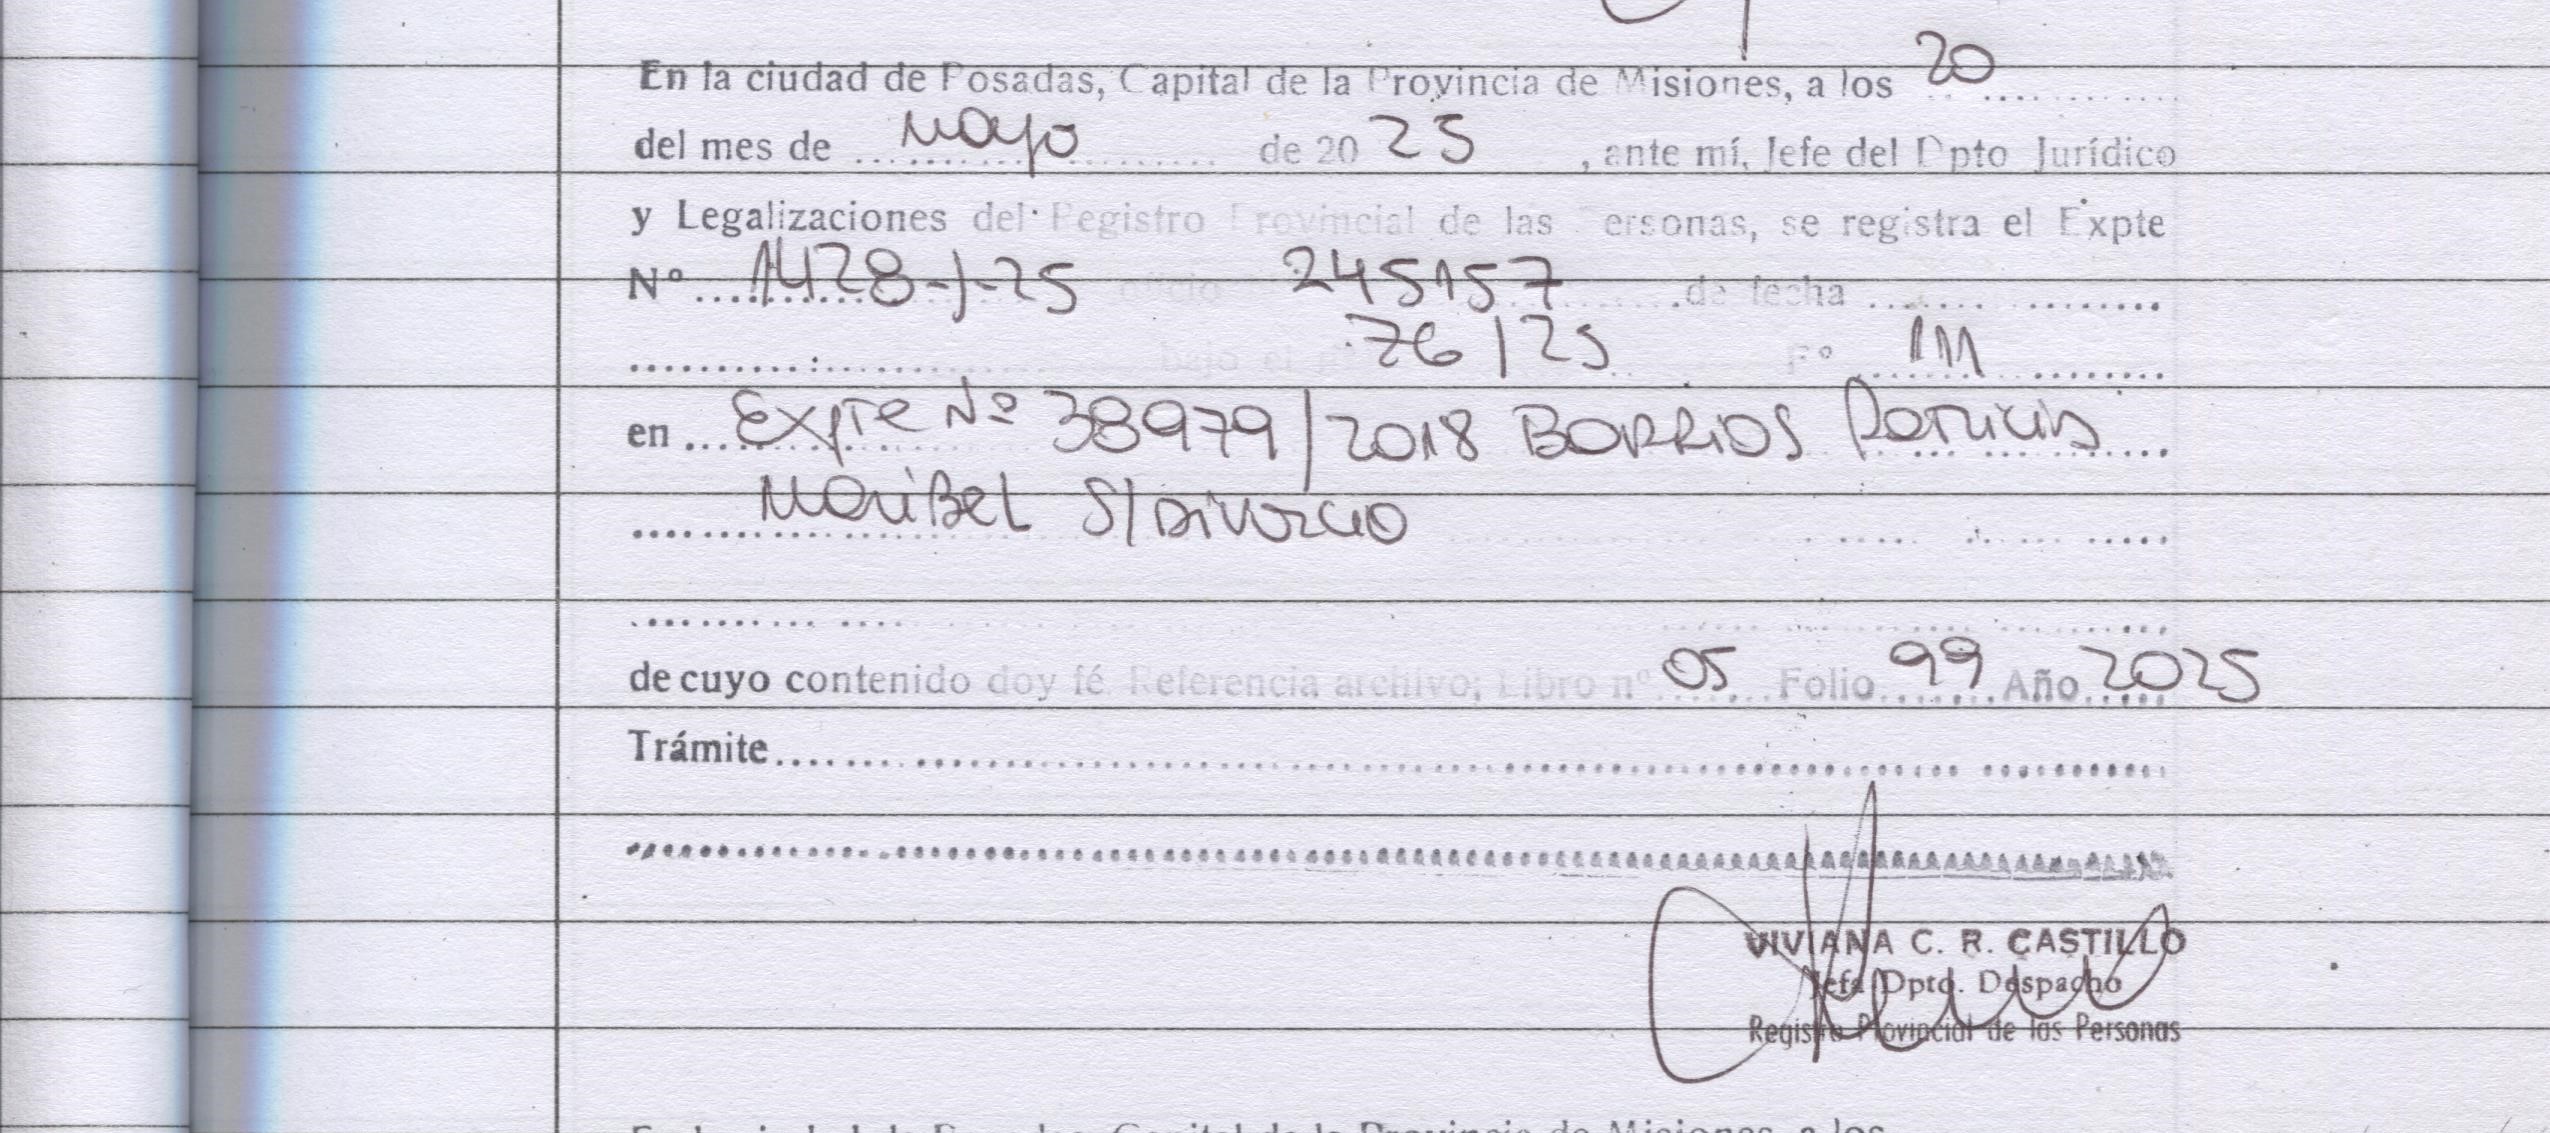 En la ciudad de Posadas, Capital de la Provincia de Misiones, a los 20
del mes de mayo de 20 25 , ante mí, Jefe del Dpto Jurídico
y Legalizaciones del Registro Provincial de las Personas, se registra el Expte
Nº 1428-J-25 oficio 245157 de fecha
bajo el nº 76/25 Fº 111
en Expte Nº 38979/2018 BARRIOS Patricia
Maribel S/Divorcio
de cuyo contenido doy fé Referencia archivo; Libro nº 05 Folio 99 Año 2025
Trámite
VIVIANA C. R. CASTILLO
Jefa Dpto. Despacho
Registro Provincial de las Personas
En la ciudad de Posadas, Capital de la Provincia de Misiones, a los